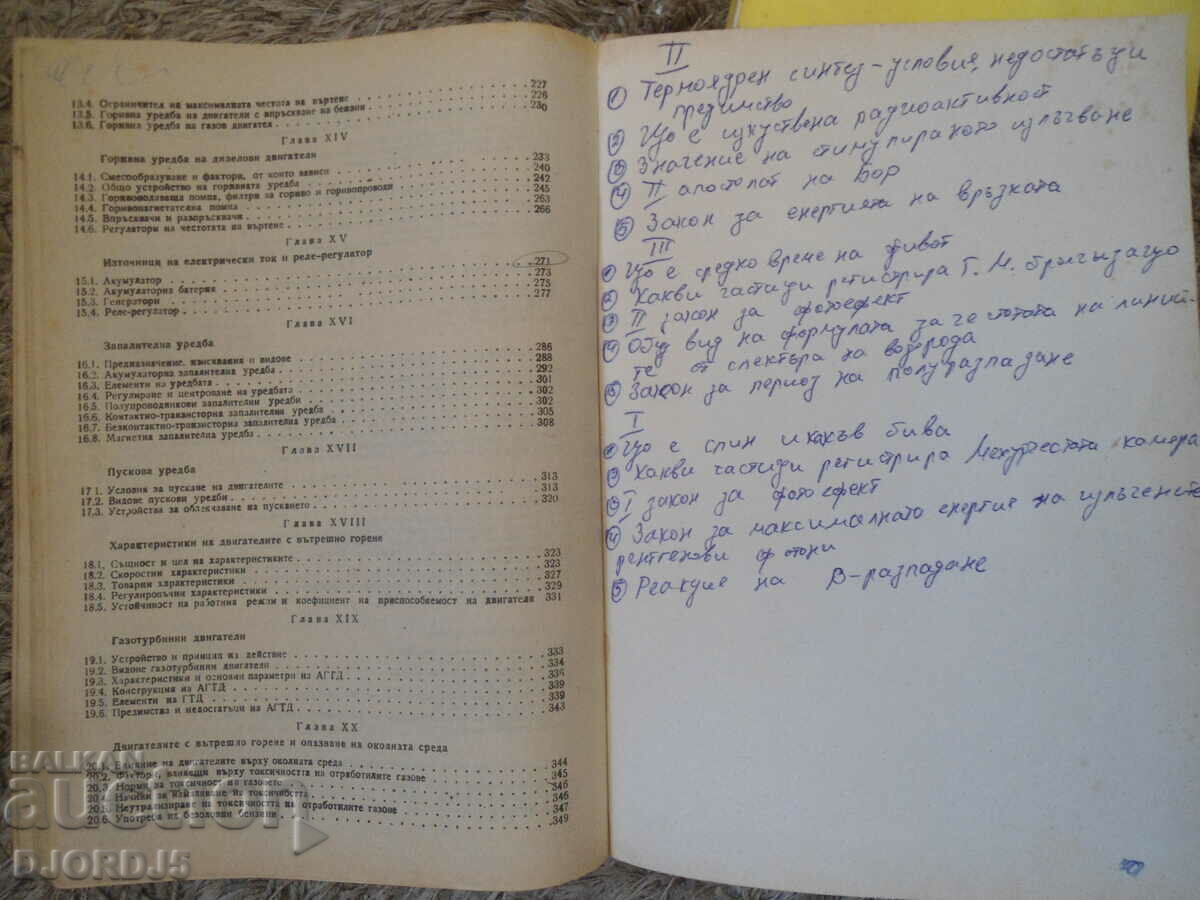 227
13.4. Ограничител на максималната честота на въртене 226
13.5. Горивна уредба на двигатели с впръскване на бензин 230
13.6. Горивна уредба на газов двигател
Глава XIV
Горивна уредба на дизелови двигатели 233
14.1. Смесообразуване и фактори, от които зависи 240
14.2. Общо устройство на горивната уредба 242
14.3. Горивоподаваща помпа, филтри за гориво и горивопроводи 245
14.4. Горивонагнетателна помпа 263
14.5. Впръсквачи и разпръсквачи 266
14.6. Регулатори на честотата на въртене
Глава XV
Източници на електрически ток и реле-регулатор 271
15.1. Акумулатор 273
15.2. Акумулаторна батерия 275
15.3. Генератори 277
15.4. Реле-регулатор
Глава XVI
Запалителна уредба 286
16.1. Предназначение, изисквания и видове 288
16.2. Акумулаторна запалителна уредба 292
16.3. Елементи на уредбата 301
16.4. Регулиране и центроване на уредбата 302
16.5. Полупроводникови запалителни уредби 302
16.6. Контактно-транзисторна запалителна уредба 305
16.7. Безконтактно-транзисторна запалителна уредба 308
16.8. Магнетна запалителна уредба
Глава XVII
Пускова уредба 313
17.1. Условия за пускане на двигателите 313
17.2. Видове пускови уредби 320
17.3. Устройства за облекчаване на пускането
Глава XVIII
Характеристики на двигателите с вътрешно горене
18.1. Същност и цел на характеристиките 323
18.2. Скоростни характеристики 323
18.3. Товарни характеристики 327
18.4. Регулировъчни характеристики 329
18.5. Устойчивост на работния режим и коефициент на приспособяемост на двигателя 331
Глава XIX
Газотурбинни двигатели
19.1. Устройство и принцип на действие 333
19.2. Видове газотурбинни двигатели 334
19.3. Характеристики и основни параметри на АГТД 336
19.4. Конструкция на АГТД 339
19.5. Елементи на ГТД 339
19.6. Предимства и недостатъци на АГТД 343
Глава XX
Двигателите с вътрешно горене и опазване на околната среда
20.1. Влияние на двигателите върху околната среда 344
20.2. Фактори, влияещи върху токсичността на отработилите газове 345
20.3. Норми за токсичност на газовете 346
20.4. Начини за намаляване на токсичността 346
20.5. Неутрализиране на токсичността на отработилите газове 347
20.6. Употреба на безоловни бензини 349
BALKAN
auction
DJORDJ5
II
① Термоядрен синтез - условия, недостатъци
предимство
② Що е изкуствена радиоактивност
③ Значение на стимулираното излъчване
④ II апостолат на Бор
⑤ Закон за енергията на връзката
III
① Що е средно време на живот
② Какви частици регистрира Г. М.
③ II закон за фотоефект
④ Общ вид на формулата за честотата на линии-
те от спектъра на водорода
⑤ Закон за период на полуразпадане
I
① Що е спин и какъв бива
② Какви частици регистрира Мехурчестата камера
③ I закон за фотоефект
④ Закон за максималната енергия на излъчените
рентгенови фотони
⑤ Реакция на B-разпадане